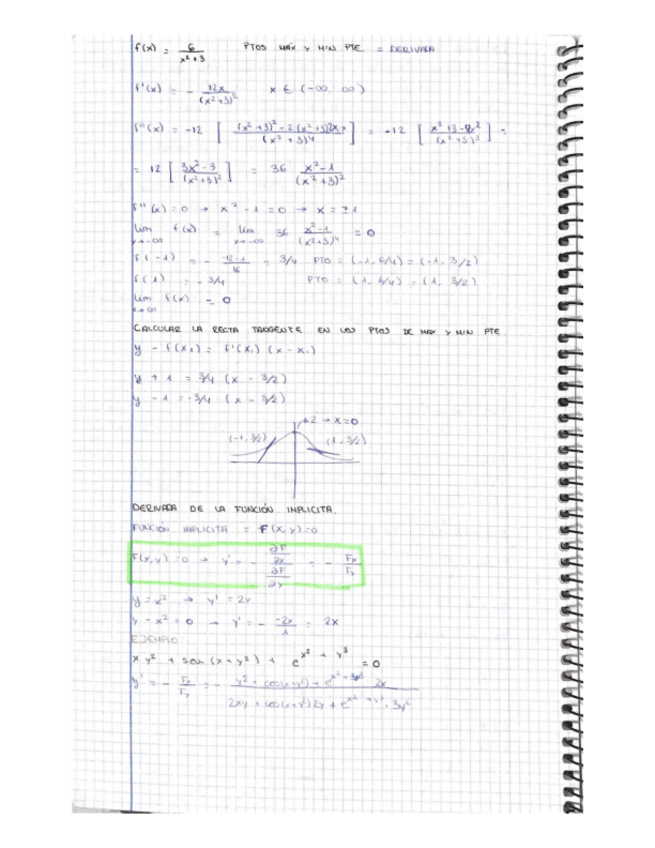 f(x) = 6 / x²+3   PTOS MÁX Y MIN PTE = DERIVADA
f'(x) = - 12x / (x²+3)²   x ∈ (-∞, ∞)
f''(x) = -12 [ (x²+3)² - 2(x²+3)2x·x / (x²+3)⁴ ] = -12 [ x²+3-4x² / (x²+3)³ ] =
= 12 [ 3x²-3 / (x²+3)² ] = 36 x²-1 / (x²+3)²
f''(x) = 0 → x²-1 = 0 → x = ±1
lim x→-∞ f(x) = lim x→-∞ 36 x²-1 / (x²+3)⁴ = 0
f(-1) = - -12·1 / 16 = 3/4   PTO = (-1, 6/4) = (-1, 3/2)
f(1) = - 3/4   PTO = (1, 6/4) = (1, 3/2)
lim x→∞ f(x) = 0
CALCULAR LA RECTA TANGENTE EN LOS PTOS DE MAX Y MIN PTE.
y - f(x₁) = f'(x₁) (x - x₁)
y + 1 = 3/4 (x - 3/2)
y - 1 = -3/4 (x - 3/2)
2 → x=0
(-1, 3/2)   (1, 3/2)
DERIVADA DE LA FUNCIÓN IMPLICITA.
FUNCIÓN IMPLICITA = F(x, y) = 0
F(x, y) = 0 → y' = - ∂F/∂x / ∂F/∂y = - Fx / Fy
y = x² → y' = 2x
y - x² = 0 → y' = - -2x / 1 = 2x
EJEMPLO
x y² + sen (x + y²) + e^x² + y³ = 0
y' = - Fx / Fy = - y² + cos(x+y²) + e^x²+y³ 2x / 2xy + cos(x+y²)2y + e^x²+y³ · 3y²